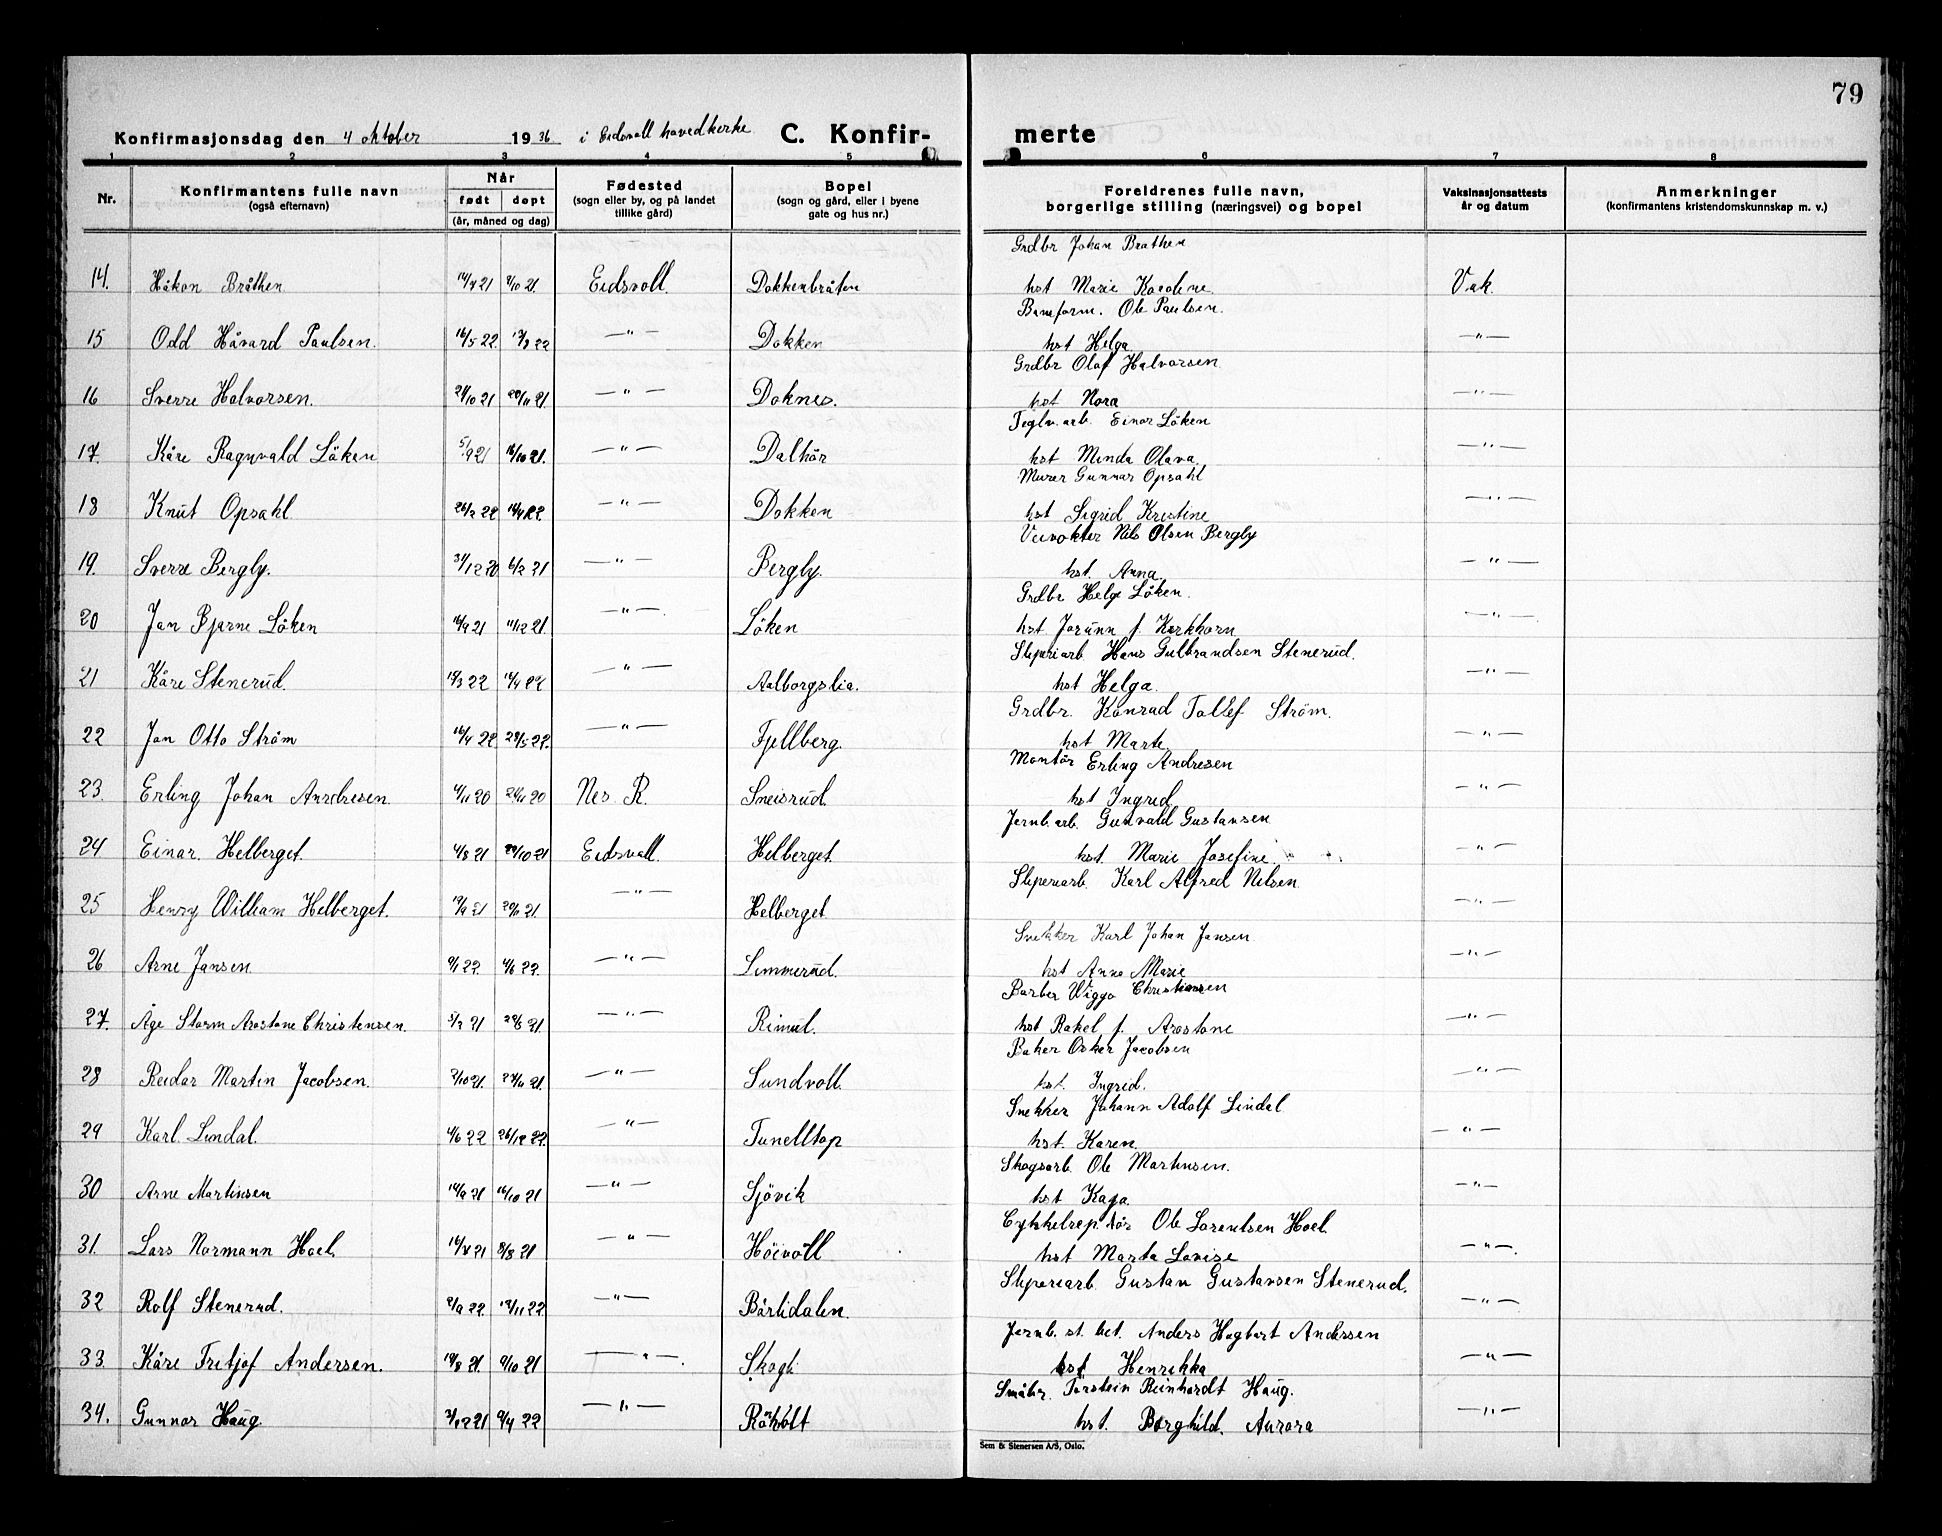 79
Konfirmasjonsdag den 4 oktober 1936 i Eidsvoll hovedkirke C. Konfir- merte
1 2 3 4 5 6 7 8
Nr. Konfirmantens fulle navn (også efternavn) Når født døpt (år, måned og dag) Fødested (sogn eller by, og på landet tillike gård) Bopel (sogn og gård, eller i byene gate og hus nr.) Foreldrenes fulle navn, borgerlige stilling (næringsvei) og bopel Vaksinasjonsattests år og datum Anmerkninger (konfirmantens kristendomskunnskap m. v.)
Grdbr Johan Bråthen
14. Håkon Bråthen 21 9/10 21. Eidsvoll. Dokkenbråten hst Marie Karoline Vak.
Baneform. Ole Paulsen.
15 Odd Håvard Paulsen. 16/5 22. 22 —"— Dokken hst Helga —"—
Grdbr Olaf Halvorsen
16 Sverre Halvorsen. /10 21 /11 21. —"— Doknes. hst Nora —"—
Teglv.arb. Einar Löken
17. Kåre Ragnvald Löken 5/9 21 /10 21. —"— Dalhör hst Minda Olava —"—
Murer Gunnar Opsahl
18 Knut Opsahl 22 22. —"— Dokken hst Sigrid Kristine —"—
Nils Olsen Bergly
19. Sverre Bergly. 31/12 20 6/2 21 —"— Bergly. hst. Anna. —"—
Grdbr Helge Löken.
20 Jan Bjarne Löken /9 21 11/12 21. —"— Löken hst Jorunn f. Korkhorn —"—
Sliperiarb. Hans Gulbrandsen Stenerud.
21 Kåre Stenerud. /3 22 /4 22 —"— Aalborgslia. hst Helga. —"—
Grdbr. Konrad Tollef Ström.
22 Jan Otto Ström 16/4 22 /5 22. —"— Fjellberg. hst Marte. —"—
Montör Erling Andresen
23. Erling Johan Andresen. /11 20 /11 20 Nes R. Sneisrud. hst Ingrid —"—
Jernb.arb. Gunvald Gustavsen
24 Einar. Helberget. /8 21 /10 21 Eidsvoll. Helberget hst. Marie Josefine. —"—
Sliperiarb. Karl Alfred Nilsen
25 Henry William Helberget. /9 21 21. —"— Helberget —"—
Snekker Karl Johan Jansen
26 Arne Jansen 22. /6 22. —"— Limmerud. hst Anna Marie —"—
Barber Wiggo Christiansen
27. Åge Storm Arostone Christensen. 5/2 21 21 —"— Rimul. hst Rakel f. Arostone —"—
Baker Oskar Jacobsen
28 Reidar Martin Jacobsen. /10 21. /11 21. —"— Sundvoll. hst. Ingrid. —"—
Snekker Johann Adolf Lindal
29 Karl Lindal. /6 22 26/12 22. —"— Tunelltop hst. Karen. —"—
Skogsarb. Ole Martinsen.
30 Arne Martinsen /9 21 /10 21 —"— Sjövik hst Kaja. —"—
Cykkelrep.tör Ole Lorentsen Hoel.
31. Lars Normann Hoel. 21 /8 21 —"— Höivoll hst Marta Lovise —"—
Sliperiarb. Gustav Gustavsen Stenerud.
32 Rolf Stenerud. /9 22. /11 22 —"— Bårlidalen. —"—
Jernb. st. bet. Anders Hagbart Andersen
33. Kåre Fritjof Andersen. /8 21. /10 21 —"— Skogli hst Henrikka —"—
Småbr. Torstein Reinhardt Haug.
34. Gunnar Haug /12 21 /4 22 —"— Råholt hst. Borghild. Aurora —"—
Sem & Stenersen A/S, Oslo.